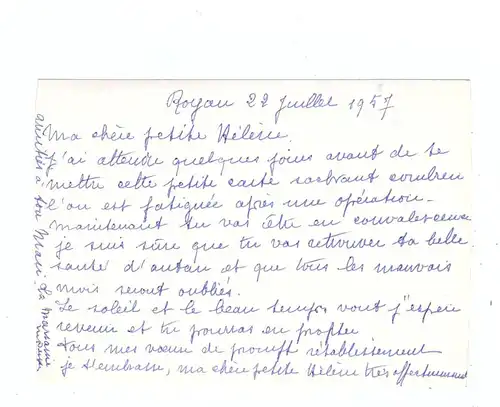 Royan 22 Juillet 1957
Ma chère petite Hélène,
J'ai attendu quelques jours avant de te
mettre cette petite carte sachant combien
l'on est fatiguée après une opération -
maintenant tu vas être en convalescence
je suis sûre que tu vas retrouver ta belle
santé d'autan et que tous les mauvais
mois seront oubliés.
Le soleil et le beau temps vont j'espère
revenir et tu pourras en profiter
Tous mes vœux de prompt rétablissement
je t'embrasse, ma chère petite Hélène très affectueusement
amitiés à ton Mari. La